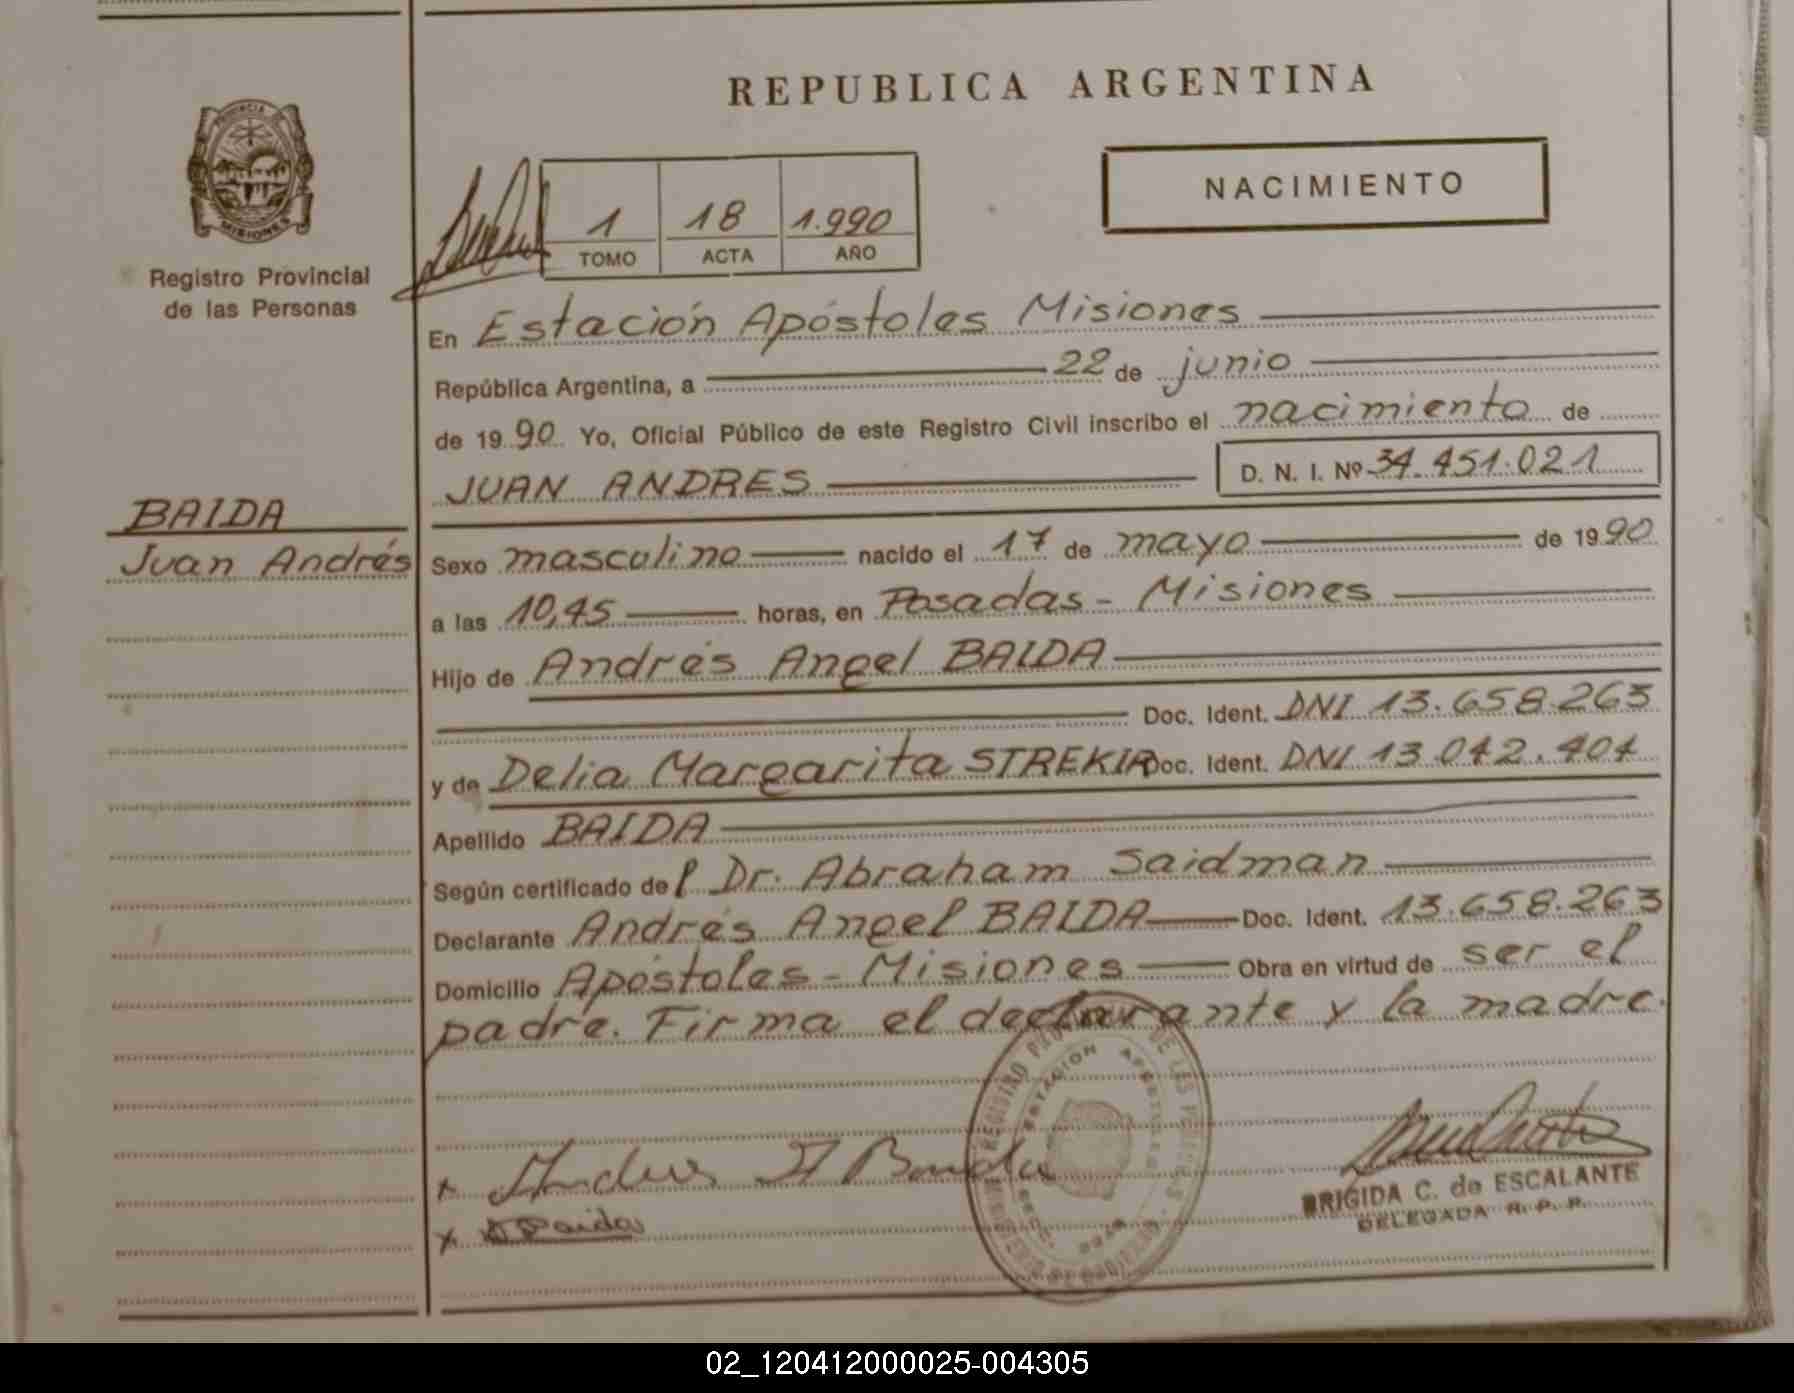 REPUBLICA ARGENTINA
NACIMIENTO
PROVINCIA DE
MISIONES
Registro Provincial
de las Personas
1 18 1.990
TOMO ACTA AÑO
En Estación Apóstoles Misiones
República Argentina, a 22 de junio
de 1990 Yo, Oficial Público de este Registro Civil inscribo el nacimiento de
JUAN ANDRES D. N. I. Nº 34.451.021
BAIDA
Juan Andrés
Sexo masculino nacido el 17 de mayo de 1990
a las 10,45 horas, en Posadas - Misiones
Hijo de Andrés Angel BAIDA
Doc. Ident. DNI 13.658.263
y de Delia Margarita STREKIR Doc. Ident. DNI 13.042.404
Apellido BAIDA
Según certificado del Dr. Abraham Saidman
Declarante Andrés Angel BAIDA Doc. Ident. 13.658.263
Domicilio Apóstoles - Misiones Obra en virtud de ser el
padre. Firma el declarante y la madre.
REGISTRO DE LAS
ESTACION APOSTOLES
x Andres A Baida
x Baida
BRIGIDA C. de ESCALANTE
DELEGADA R. P. P.
02_120412000025-004305